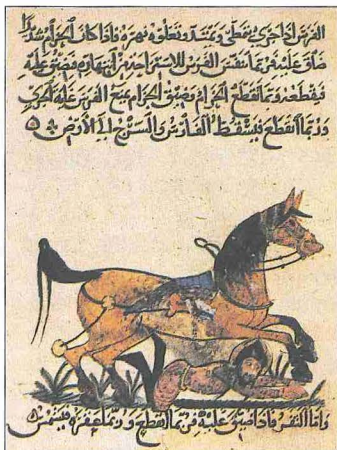 الفرس اذا جرى يتمطى ويمتد وتعلوه بهره فاذا كان الحزام شديدا
ضاق عليه فربما انتفس الفرس للاستراحة من انبهاره فيضيق عليه
فيقطعه وربما انقطع الحزام وضيق الحزام يمنع الفرس من الجري
وربما انقطع فيسقط الفارس والسرج الى الارض
واما الثفر فاذا ضيق عليه فربما انقطع وربما عقره فيشمس